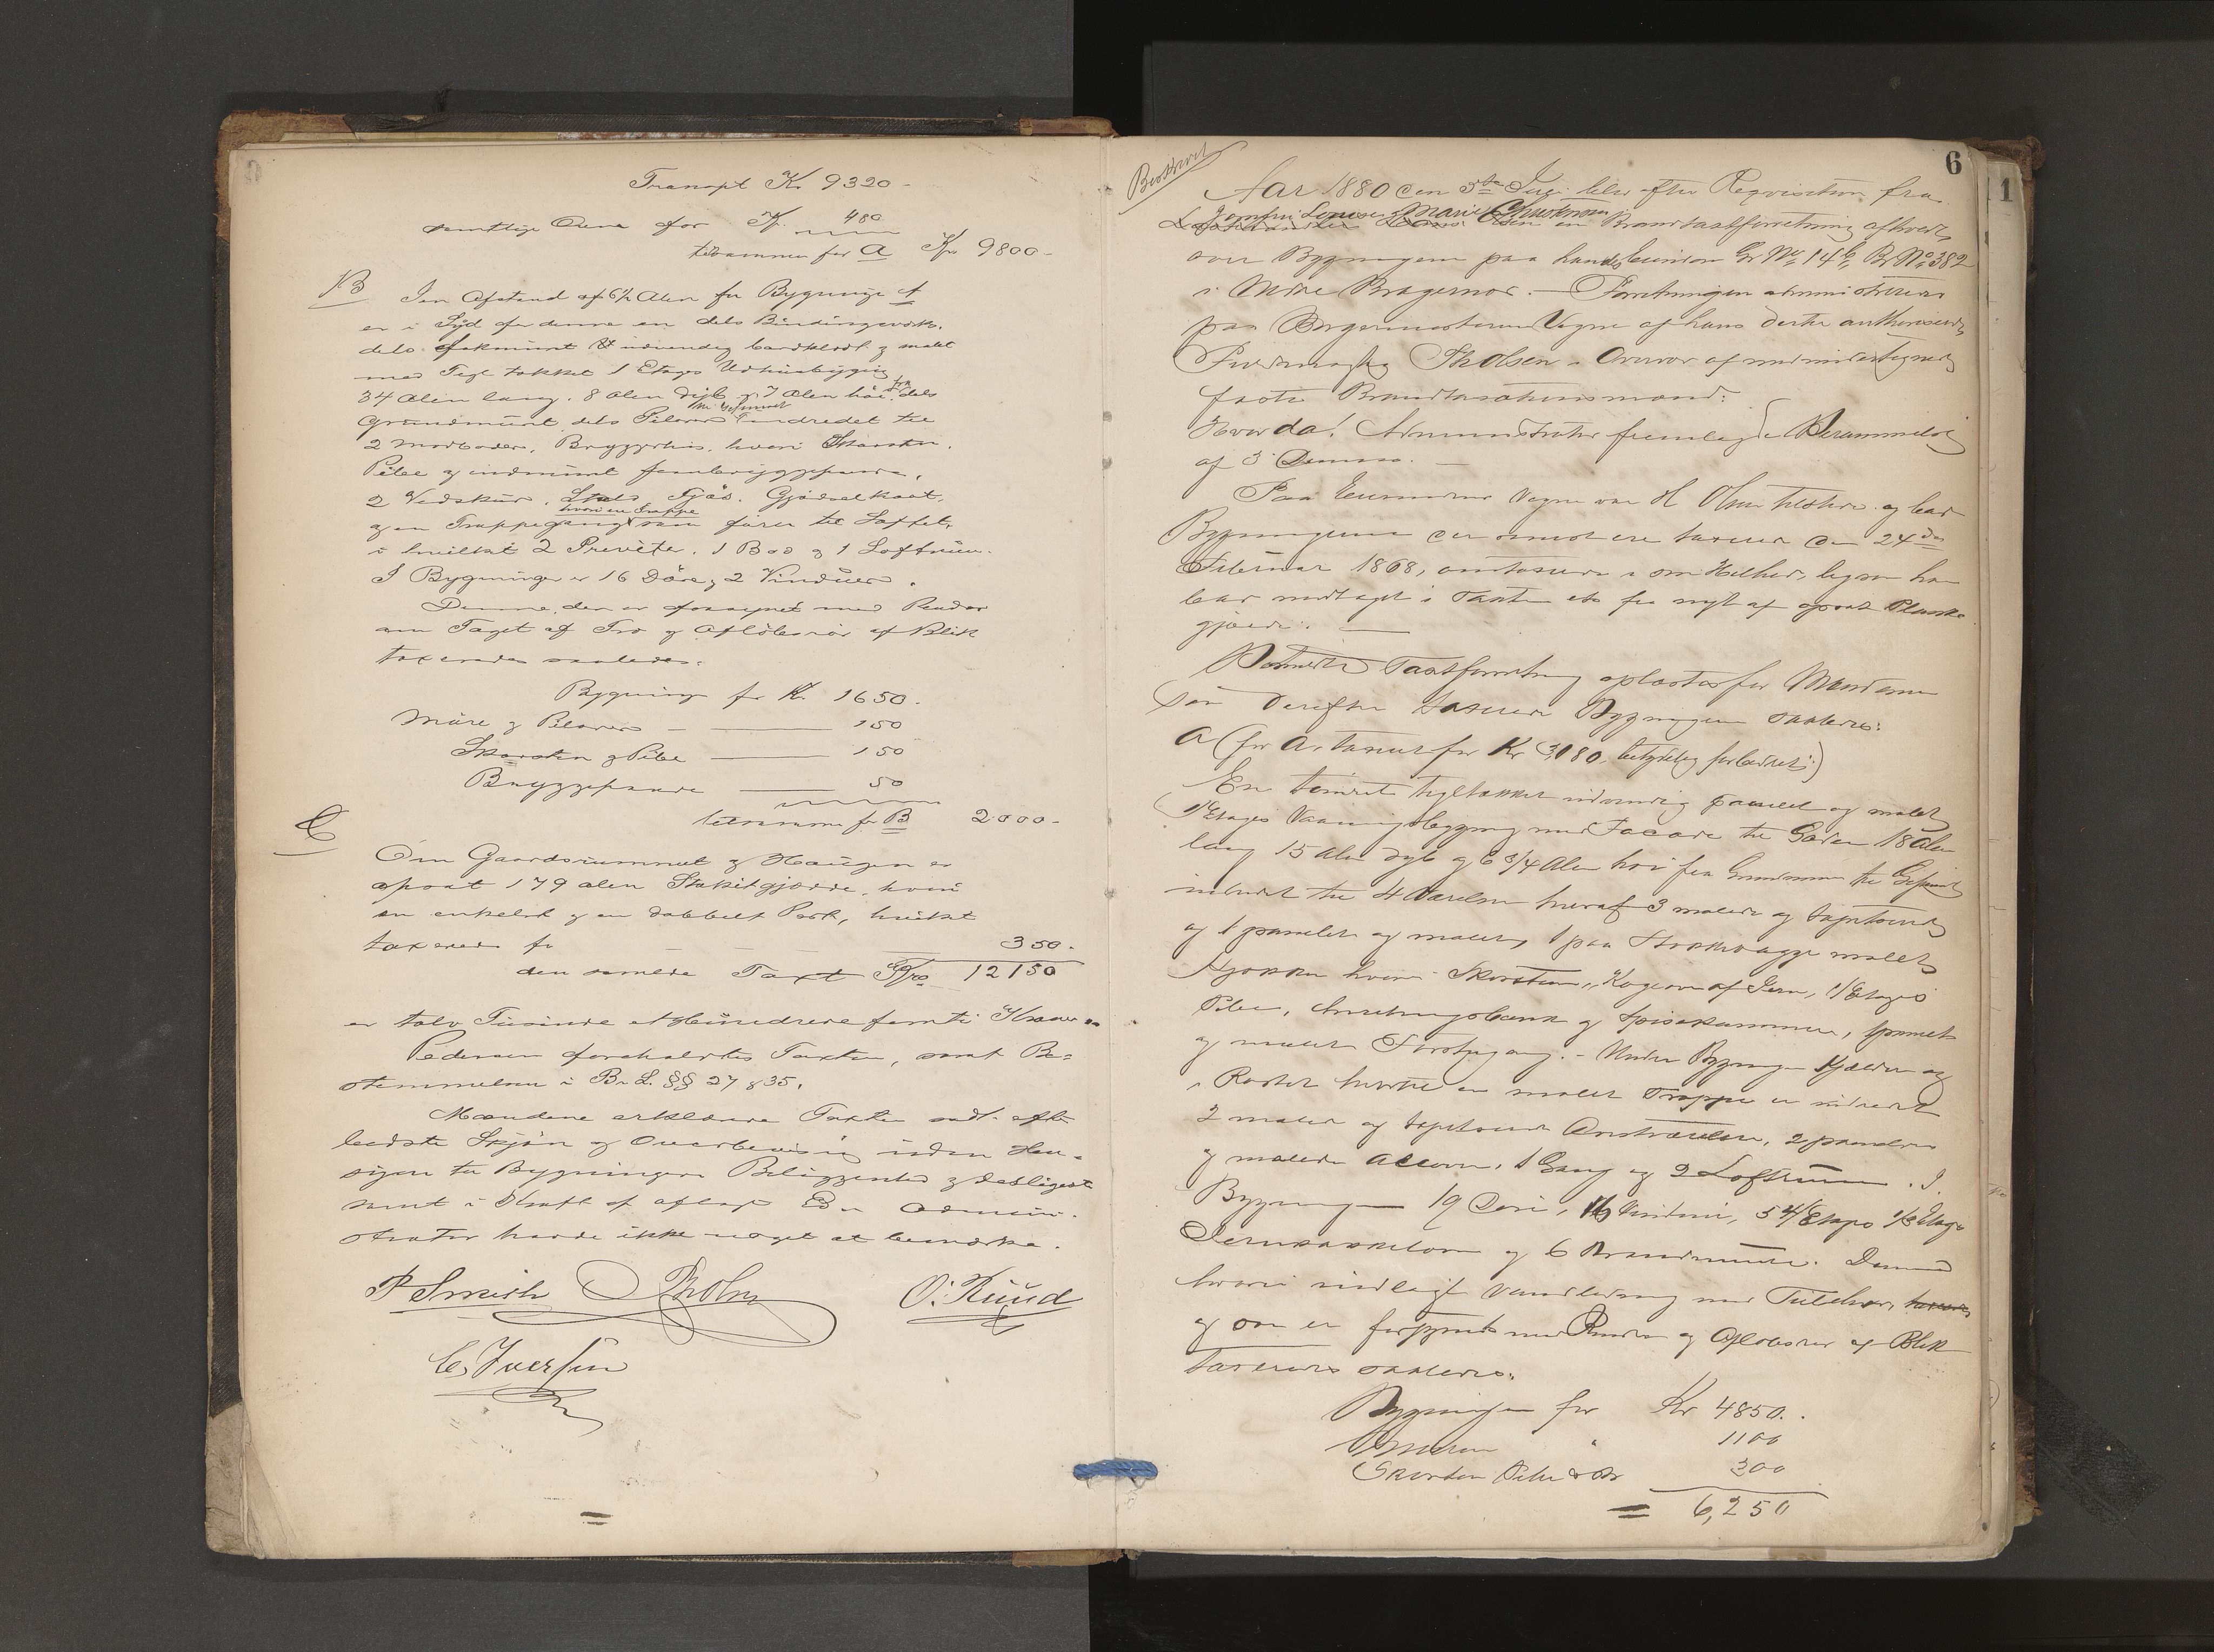 Transpt Kr 9320 -
samtlige Ovne for Kr. 480
tilsammen for A Kr 9800 -
B I en Afstand af 6½ Alen fra Bygning A
er i Syd for denne en dels Bindingsværks,
dels udmuret udvendig bordklædt og malet
med Tegl takket 1 Etages Udhusbygning
34 Alen lang, 8 Alen dyb og 7 Alen høi fra dels
Grundmuur dels Pilarer til Gesimset indredet til
2 Madboder, Bryggerhus, hvori Skorsten,
Pibe og indmuret Bryggepande,
2 Vedskur, Stald, Fjøs, Gjødselkast,
og en Trappegang hvori en Trappe som fører til Loftet,
i hvilket 2 Priveter, 1 Bod og 1 Loftrum.
I Bygningen er 16 Døre og 2 Vinduer.
Denne, der er forsynet med Render
om Taget af Træ og Afløbsrør af Blik
taxeredes saaledes:
Bygningen for Kr. 1650.
Mure og Pilarer - 150
Skorsten og Pibe 150
Bryggepande 50
tilsammen for B 2000 -
C
Om Gaardsrummet og Haugen er
opsat 179 alen Stakitgjærde, hvori
en enkelt og en dobbelt Port, hvilket
taxeredes for 350.
den samlede Taxt Kr. 12150
er tolv Tusinde et Hundrede femti Kroner
Pedersen foreholdtes Taxten, samt Be=
stemmelsen i Br. L. §§ 27 & 35.
Mændene erklærede Taxten sat efter
bedste Skjøn og Overbevisning uden Hen-
syn til Bygningens Beliggenhed og desligeste
samt i Kraft af aflagt Ed. Admini-
strator havde ikke noget at bemærke.
P Smith ThOlsen O. Ruud
C. Iversen
6
1
Beskrevet
Aar 1880 den 5te Juni blev efter Reqvisition fra
Jomfru Lovise Marie Christensen en Brandtaxtforretning afholdt
over Bygningerne paa hendes Eiendom Gr No 14b, Br No 382
i Nedre Bragernæs. - Forretningen administreredes
paa Borgermesterens Vegne af hans dertil authoriserede
Fuldmægtig ThOlsen - Overvær af nedenundertegnede
faste Brandtaxationsmænd:
Hvorda! Administrator fremlagde Berammelse
af 3 Dennes. -
Paa Eierindens Vegne var H Olsen tilstede og bad
Bygningerne der senest ere taxerede den 24de
Februar 1868, omtaxerede i sin Helhed, ligesom han
bad medtaget i Taxten et fra nyt af opsat Planke
gjærde. -
Bemeldte Taxtforretning oplæstes for Mændene
som derefter taxerede Bygningerne saaledes:
A (før A. taxeret for Kr 3,080, betydelig forbedret:)
En tømret tegltækket udvendig panelet og malet
1 Etages Vaaningsbygning med Facade til Gaden 18 Alen
lang 15 Alen dyb og 6 3/4 Alen høi fra Grundmuur til Gesimset
indredet til 4 Værelser hvoraf 3 malede og tapetserede
og 1 panelet og malet, 1 paa Stokkevægge malet
Kjøkken hvori Skorsten, Kogeovn af Jern, 1 Etages
Pibe, Anretningsbænk og Spisekammer, 1 panelet
og malet Forstuegang. - Under Bygningen Kjælder og
i Rostet hvortil en malet Trappe er indredet
2 malede og tapetserede Qvistværelser, 2 panelede
og malede Alcover, 1 Gang og 2 Loftrum. I
Bygningen 19 Døre, 16 Vinduer, 5 4/Etages 1 3/Etages
Jernkakkelovn og 6 Brandmure. Denne
hvori indlagt Vandledning med Tilbehør,
og som er forsynet med Render og Afløbsrør af Blik
taxeredes saaledes:
Bygningen for Kr 4850.
Murene " 1100
Skorsten Pibe 300
= 6,250